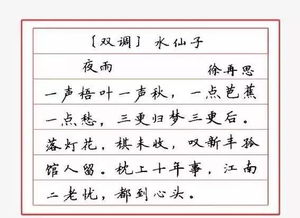 〔双调〕水仙子
夜雨 徐再思
一声梧叶一声秋，一点芭蕉
一点愁，三更归梦三更后。
落灯花，棋未收，叹新丰孤
馆人留。枕上十年事，江南
二老忧，都到心头。